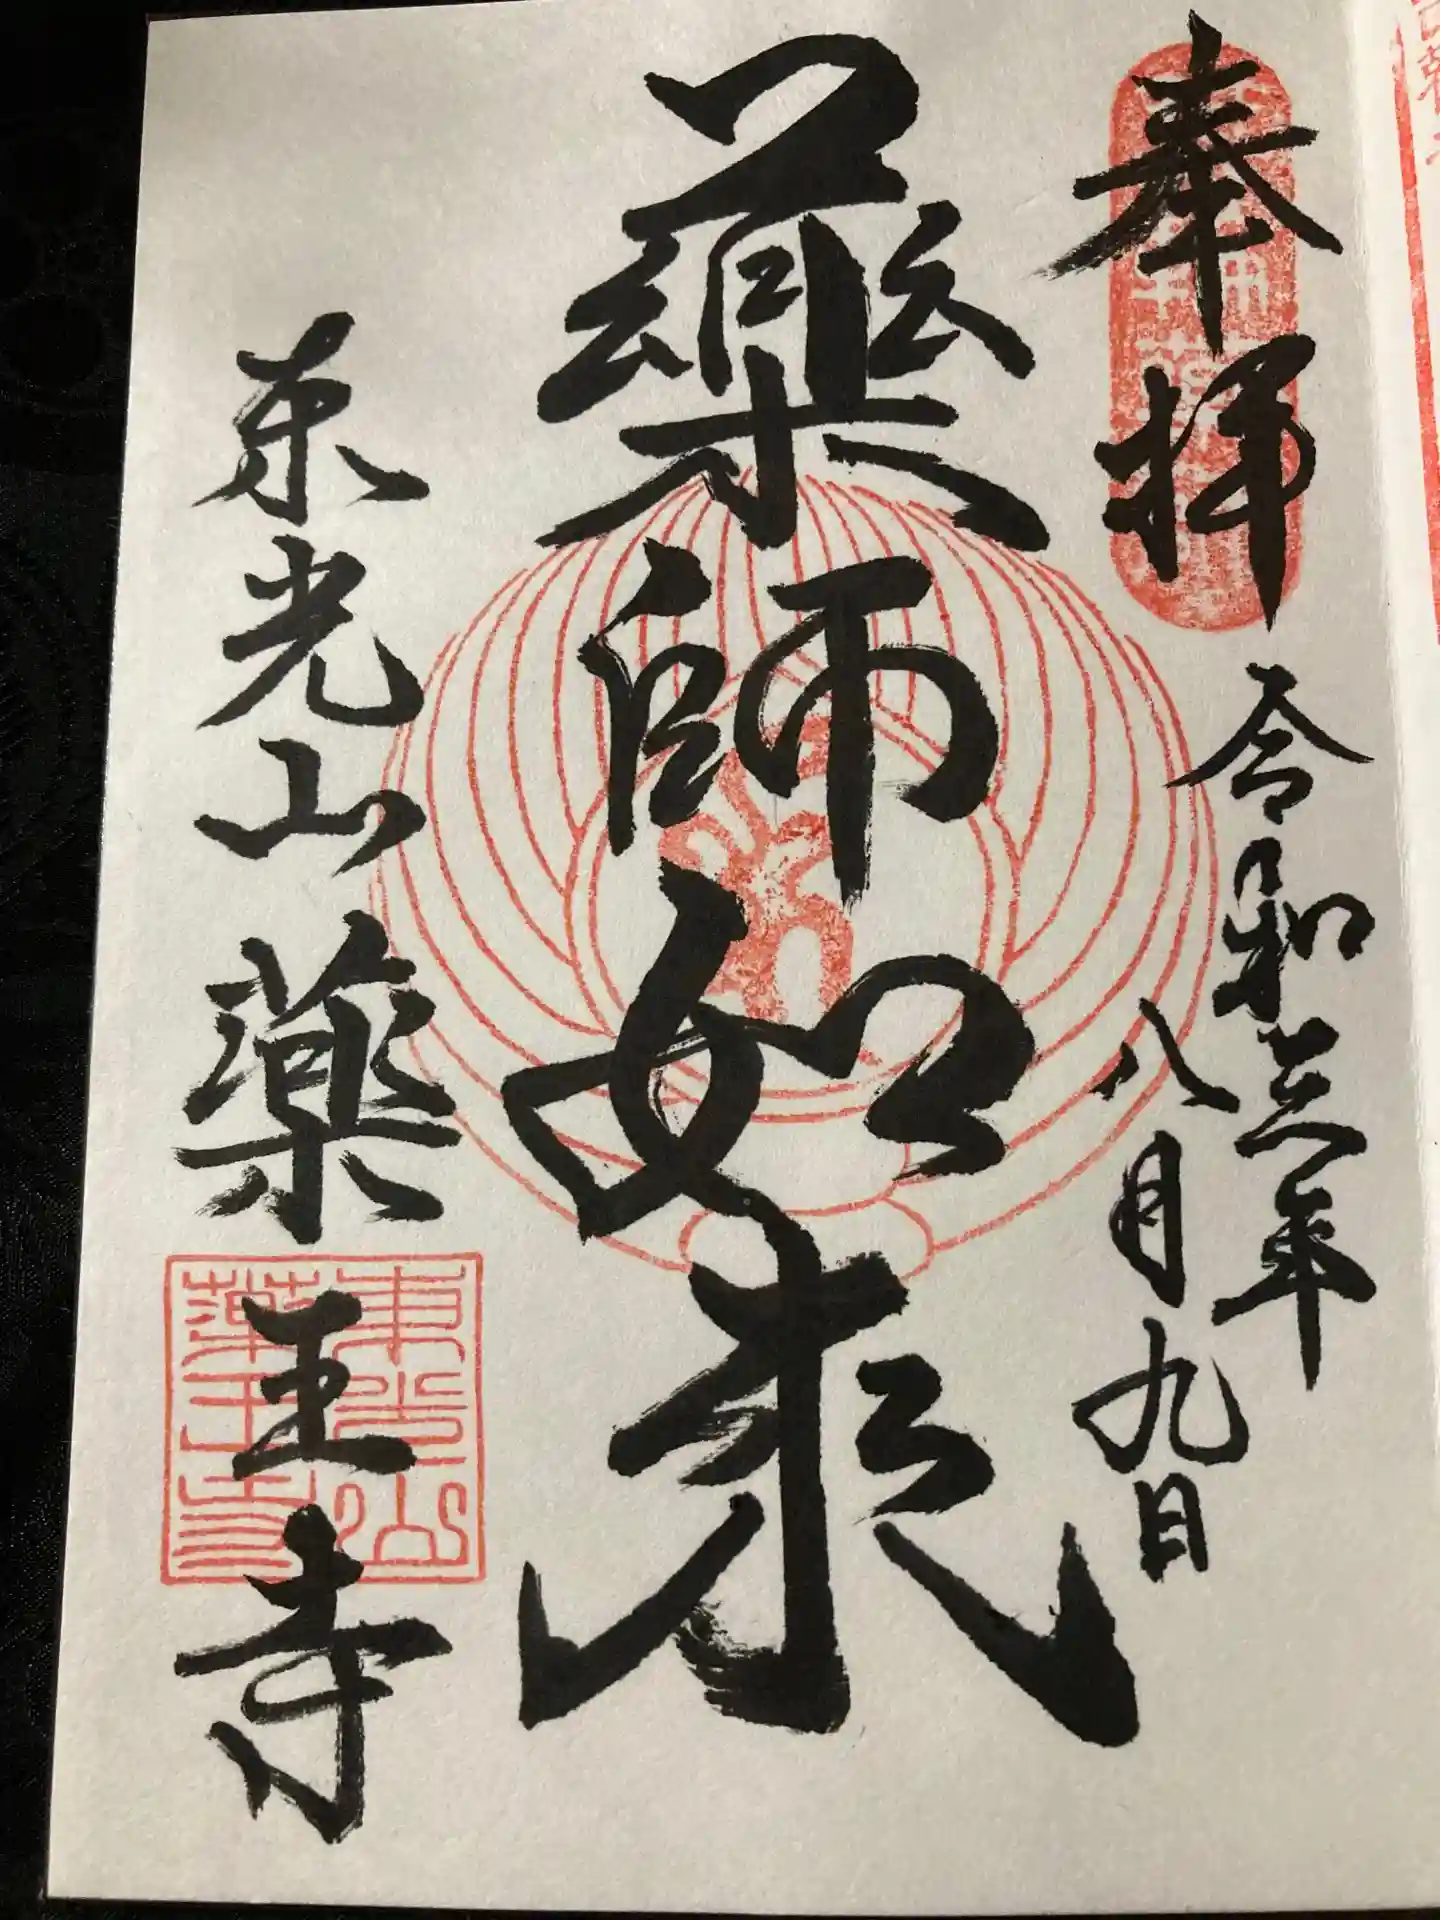 奉拝
令和三年
八月九日
藥師如来
东光山藥王寺
東光山
藥王寺